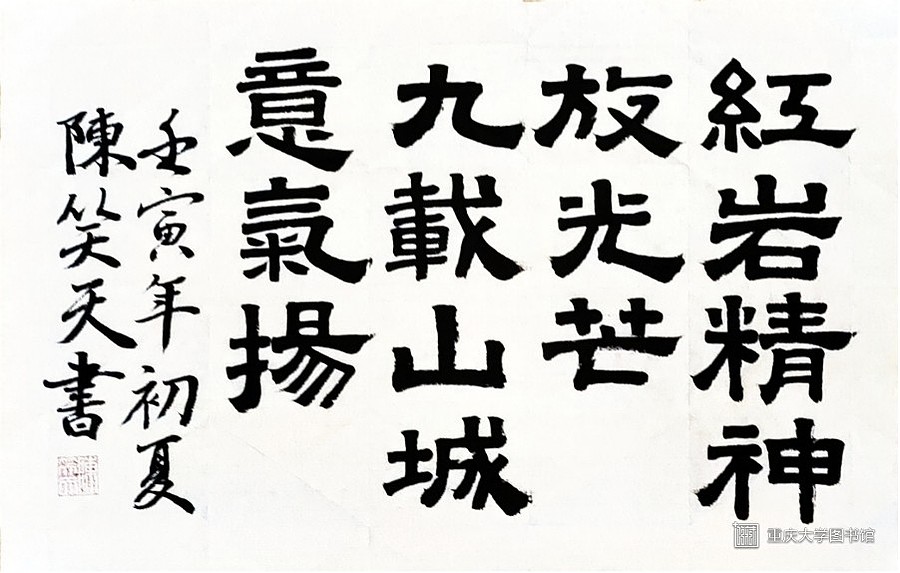 紅岩精神
放光芒
九載山城
意氣揚
壬寅年初夏
陳笑天書
重庆大学图书馆